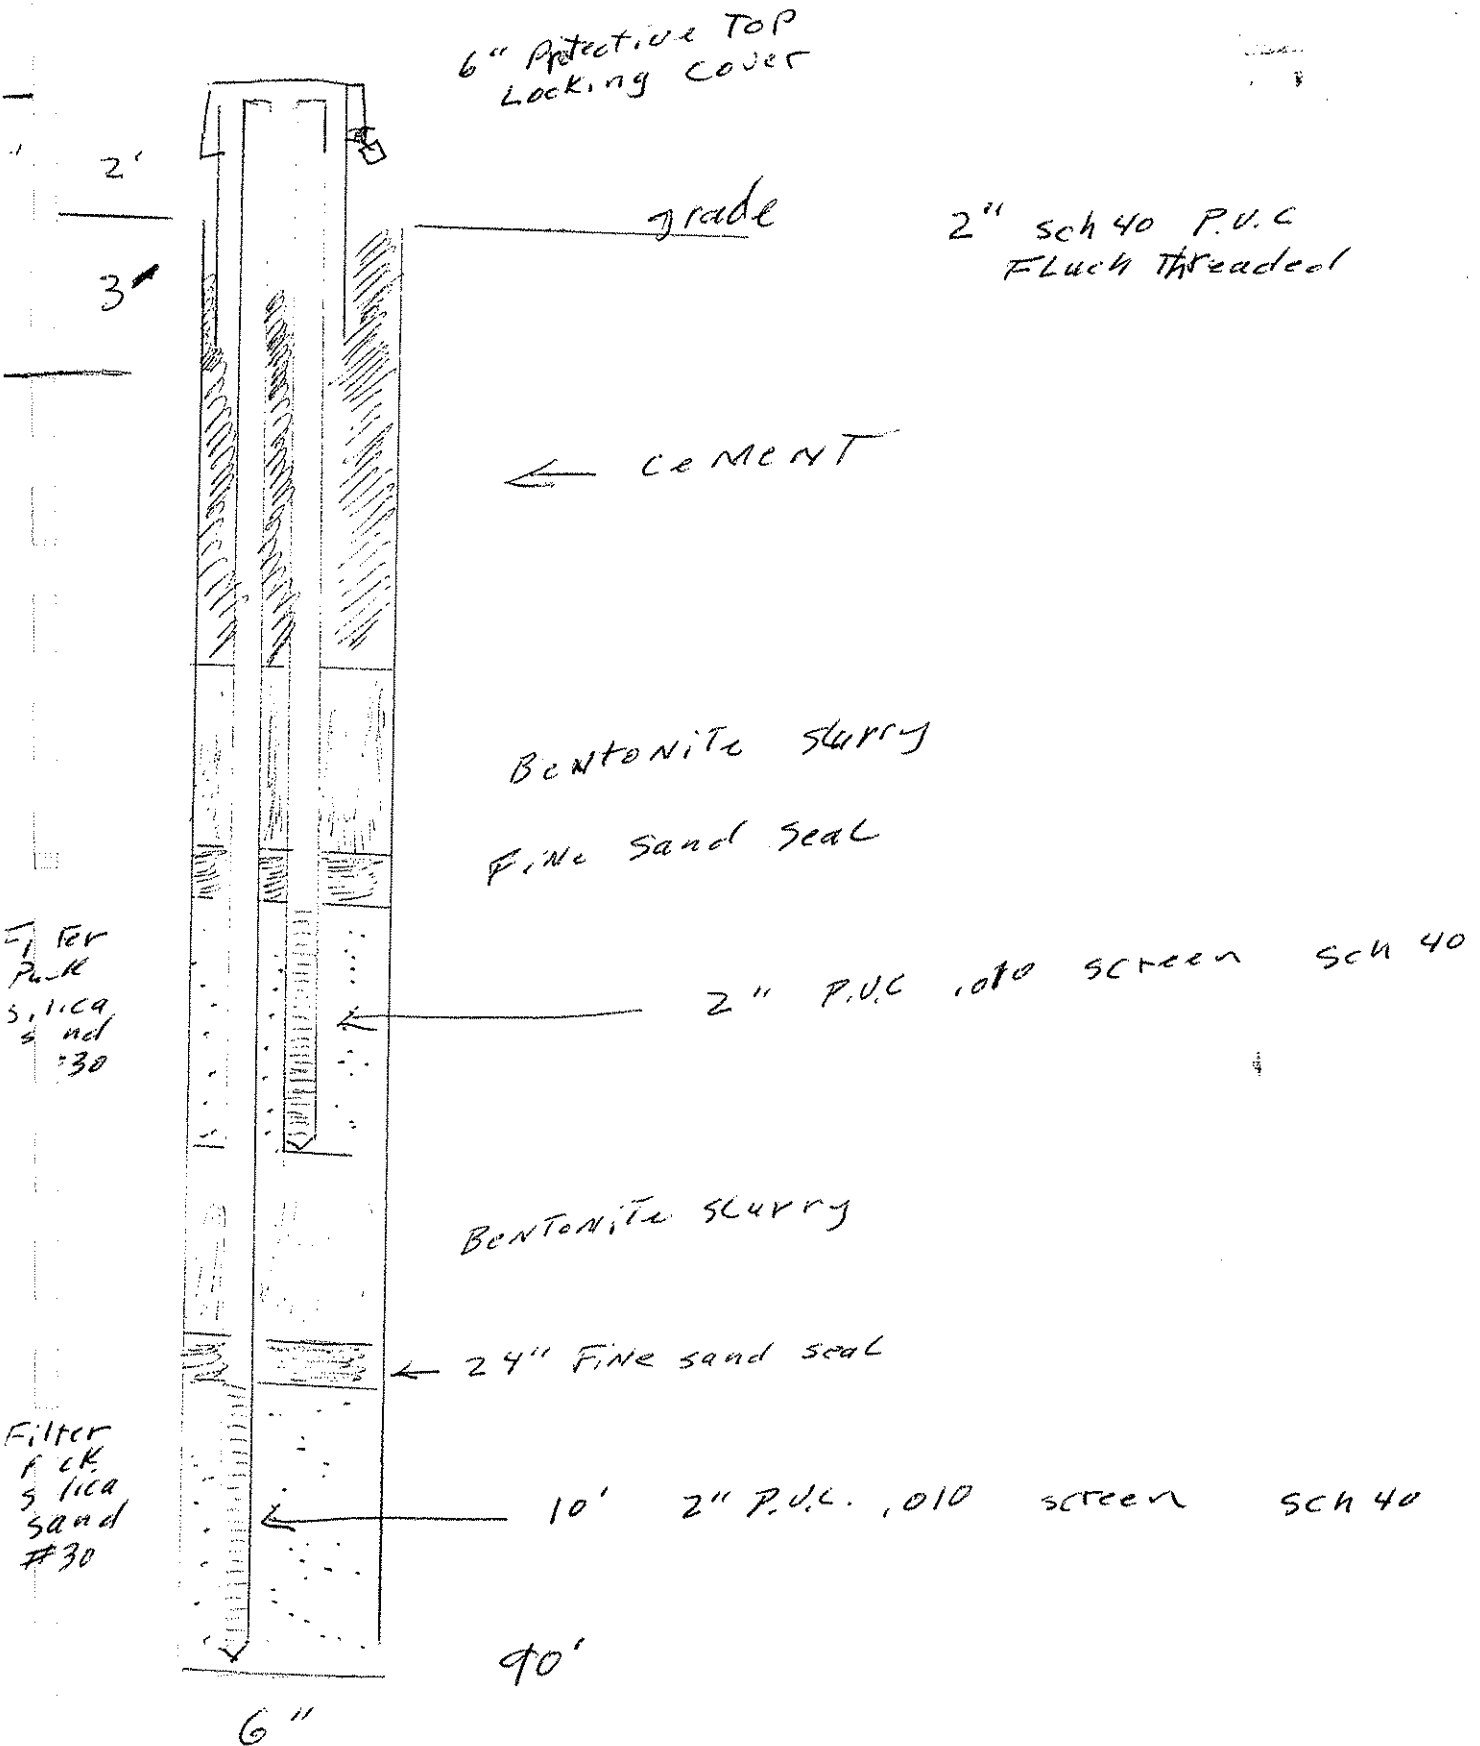 6" Protective TOP
Locking Cover
2'
grade
2" sch 40 P.V.C
FLuch Threaded
3'
CeMeNT
BeNtoNiTe slurry
FiNe Sand SeaL
Silica
30
2" P.V.C .010 screen Sch 40
BeNToNiTe sLurry
24" FiNe sand seaL
Filter
sand
#30
10' 2" P.V.C. .010 screen sch 40
6"